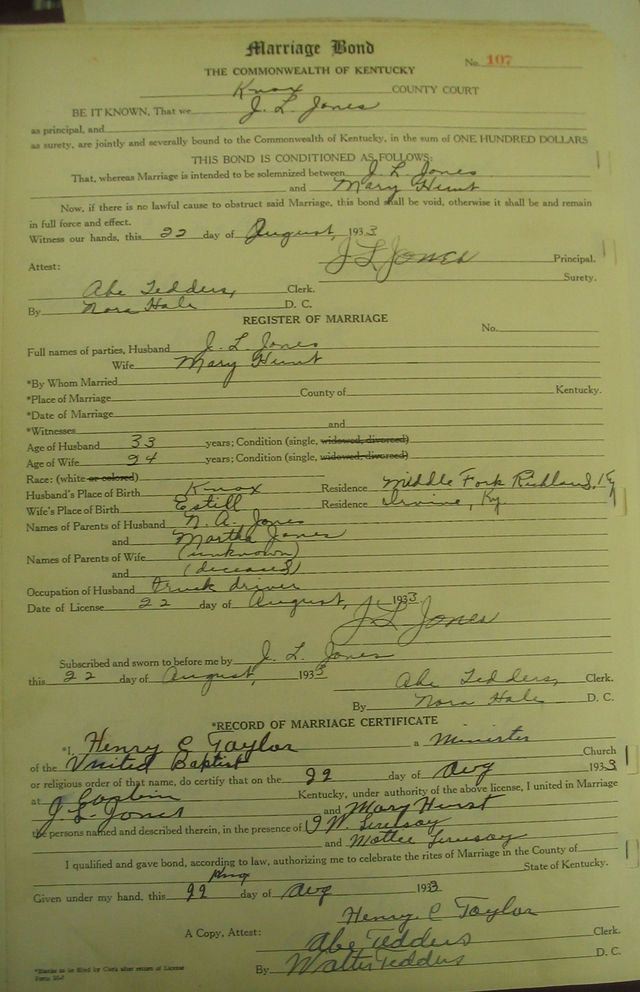 Marriage Bond
No. 107
THE COMMONWEALTH OF KENTUCKY
Knox COUNTY COURT
BE IT KNOWN, That we J. L. Jones
as principal, and
as surety, are jointly and severally bound to the Commonwealth of Kentucky, in the sum of ONE HUNDRED DOLLARS
THIS BOND IS CONDITIONED AS FOLLOWS:
That, whereas Marriage is intended to be solemnized between J. L. Jones
and Mary Hurst
Now, if there is no lawful cause to obstruct said Marriage, this bond shall be void, otherwise it shall be and remain
in full force and effect.
Witness our hands, this 22 day of August, 1933
J L Jones Principal.
Attest: Surety.
Abe Tedders, Clerk.
By Nora Hale D. C.
REGISTER OF MARRIAGE
No.
Full names of parties, Husband J. L. Jones
Wife Mary Hurst
*By Whom Married
*Place of Marriage County of Kentucky.
*Date of Marriage
*Witnesses and
Age of Husband 33 years; Condition (single, widowed, divorced)
Age of Wife 24 years; Condition (single, widowed, divorced)
Race: (white or colored)
Husband's Place of Birth Knox Residence Middle Fork Richland, Ky
Wife's Place of Birth Estill Residence Irvine, Ky.
Names of Parents of Husband N. A. Jones
and Martha Jones
Names of Parents of Wife (unknown)
and (deceased)
Occupation of Husband truck driver
Date of License 22 day of August, 1933
J L Jones
Subscribed and sworn to before me by J. L. Jones
this 22 day of August, 1933
Abe Tedders, Clerk.
By Nora Hale D. C.
*RECORD OF MARRIAGE CERTIFICATE
*I, Henry C Taylor a Minister
of the United Baptist Church
or religious order of that name, do certify that on the 22 day of Aug 1933
at Kentucky, under authority of the above license, I united in Marriage
J. L. Jones and Mary Hurst
the persons named and described therein, in the presence of
and
I qualified and gave bond, according to law, authorizing me to celebrate the rites of Marriage in the County of
Knox State of Kentucky.
Given under my hand, this 22 day of Aug 1933
Henry C Taylor
A Copy, Attest: Abe Tedders Clerk.
By Walter Tedders D. C.
*Blanks to be filled by Clerk after return of License